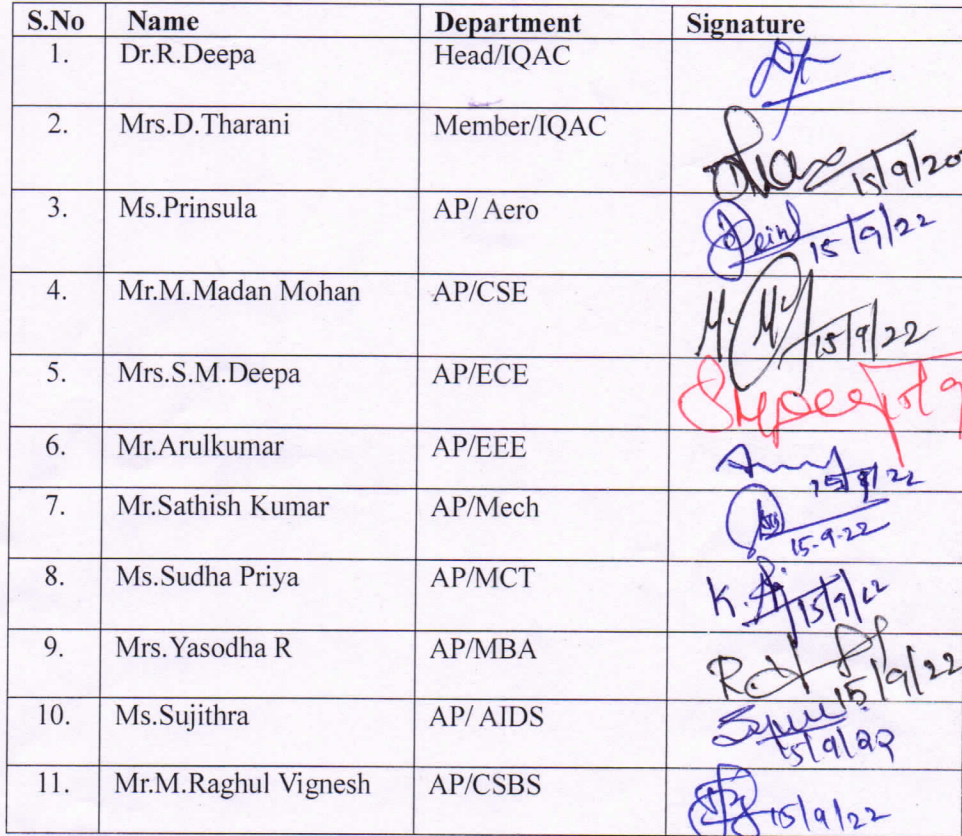 S.No Name Department Signature
1. Dr.R.Deepa Head/IQAC
2. Mrs.D.Tharani Member/IQAC 15/9/20
3. Ms.Prinsula AP/ Aero 15/9/22
4. Mr.M.Madan Mohan AP/CSE 15/9/22
5. Mrs.S.M.Deepa AP/ECE
6. Mr.Arulkumar AP/EEE 15/9/22
7. Mr.Sathish Kumar AP/Mech 15-9-22
8. Ms.Sudha Priya AP/MCT 15/9/22
9. Mrs.Yasodha R AP/MBA 15/9/22
10. Ms.Sujithra AP/ AIDS 15/9/22
11. Mr.M.Raghul Vignesh AP/CSBS 15/9/22